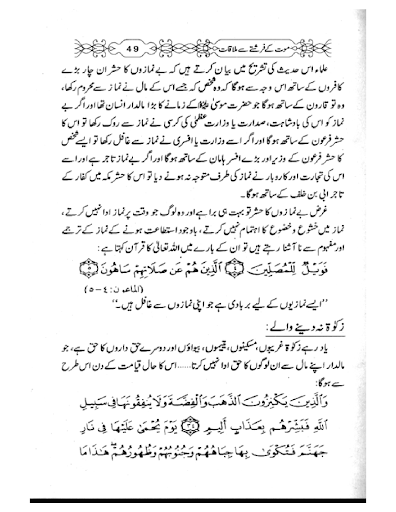 موت کے فرشتے سے ملاقات 49
علماء اس حدیث کی تشریح میں بیان کرتے ہیں کہ بے نمازوں کا حشر ان چار بڑے
کافروں کے ساتھ اس وجہ سے ہوگا کہ وہ شخص کہ جسے اس کے مال نے نماز سے محروم رکھا،
وہ تو قارون کے ساتھ ہوگا جو حضرت موسیٰ علیہ السلام کے زمانے کا بڑا مالدار انسان تھا اور اگر بے
نماز کو اس کی بادشاہت، صدارت یا وزارت عظمٰی کی کرسی نے نماز سے روک رکھا تو اس کا
حشر فرعون کے ساتھ ہوگا اور اگر اسے وزارت یا افسری نے نماز سے غافل رکھا تو ایسے شخص
کا حشر فرعون کے وزیر اور بڑے افسر ہامان کے ساتھ ہوگا اور اگر بے نماز تاجر ہے اور اسے
اس کی تجارت اور کاروبار نے نماز کی طرف متوجہ نہ ہونے دیا تو اس کا حشر مکہ میں کفار کے
تاجر ابی بن خلف کے ساتھ ہوگا۔
غرض بے نمازوں کا حشر تو بہت ہی برا ہے اور وہ لوگ جو وقت پر نماز ادا نہیں کرتے،
نماز میں خشوع و خضوع کا اہتمام نہیں کرتے، باوجود استطاعت ہونے کے نماز کے ترجمے
اور مفہوم سے نا آشنا رہتے ہیں تو ان کے بارے میں اللہ تعالیٰ کا قرآن کہتا ہے:
فَوَيْلٌ لِّلْمُصَلِّينَ ۝٤ الَّذِينَ هُمْ عَن صَلَاتِهِمْ سَاهُونَ ۝٥
(الماعون: ٤-٥)
”ایسے نمازیوں کے لیے بربادی ہے جو اپنی نمازوں سے غافل ہیں۔“
زکوٰۃ نہ دینے والے:
یاد رہے زکوٰۃ غریبوں، مسکینوں، یتیموں، بیواؤں اور دوسرے حق داروں کا حق ہے، جو
مالدار اپنے مال سے ان لوگوں کا حق ادا نہیں کرتا...... اس کا حال قیامت کے دن اس طرح
سے ہوگا:
وَالَّذِينَ يَكْنِزُونَ الذَّهَبَ وَالْفِضَّةَ وَلَا يُنفِقُونَهَا فِي سَبِيلِ
اللَّهِ فَبَشِّرْهُم بِعَذَابٍ أَلِيمٍ ۝٣٤ يَوْمَ يُحْمَىٰ عَلَيْهَا فِي نَارِ
جَهَنَّمَ فَتُكْوَىٰ بِهَا جِبَاهُهُمْ وَجُنُوبُهُمْ وَظُهُورُهُمْ هَٰذَا مَا